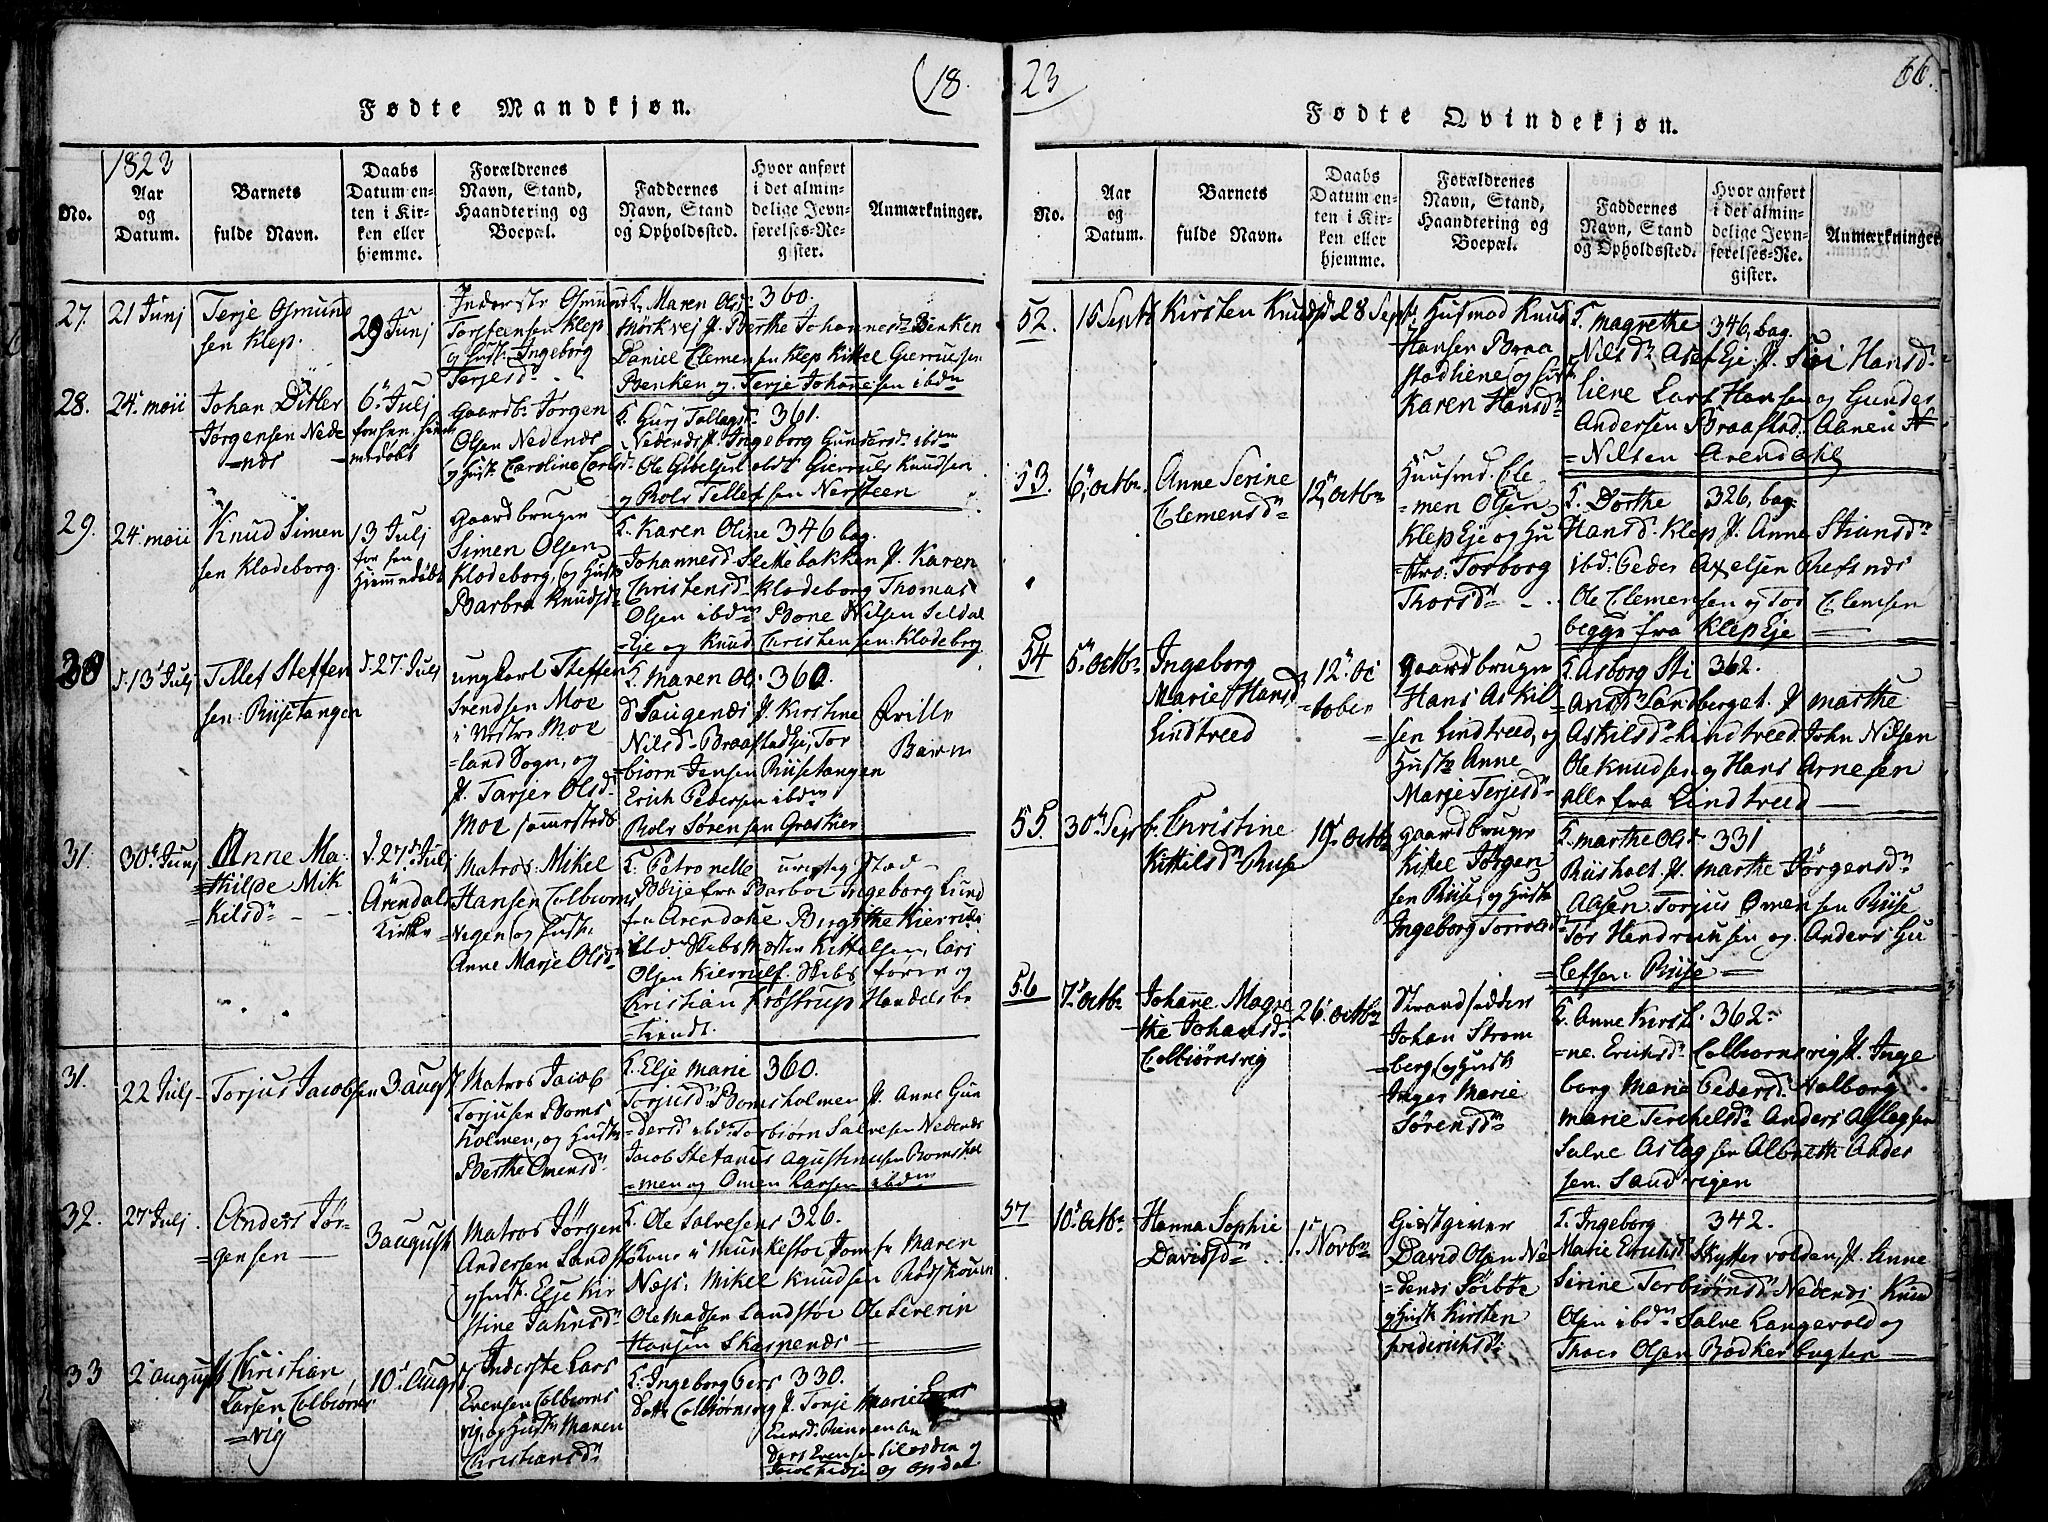 (18.
Fødte Mandkjøn.
1823
No.
Aar
og
Datum.
Barnets
fulde Navn.
Daabs
Datum en-
ten i Kir-
ken eller
hjemme.
Forældrenes
Navn, Stand,
Haandtering og
Boepæl.
Faddernes
Navn, Stand
og Opholdssted.
Hvor anført
i det almin-
delige Jevn-
førelses-Re-
gister.
Anmærkninger.
27.
21 Junj
Terje Osmund
sen Klep.
29 Junj
Inderste Osmund
Torstensen Klep
og Hust. Ingeborg
Terjesdn
Maren Olsd 360.
Mørkvej P. Berthe Johannesd Benken
Daniel Clemensen Klep Kittel Gierrulsen
Benken og Terje Johannesen ibdm
28.
24. maii
Johan Ditler
Jørgensen Nede
=næs
6te Julj
=medøbt
Gaardb. Jørgen
Olsen Nedenæs
og Hust. Caroline Carlsd
F. Gurj Tallagsd 361.
Nedenæs P. Ingeborg Gundersd ibdm
Ole Gibelsen oldt Gierruls Knudsen
og Rolv Tellefsen Nersteen
29.
24. maii
Knud Simen
sen Klodeborg.
13 Julj
for sen
Hjemmedøbt
Gaardbruger
Simen Olsen
Klodeborg, og Hust
Barbra Knudsd
F. Karen Oline 346 bag.
Johannesd Slettebakken P. Karen
Christensd Klodeborg Thomas
Olsen ibdm Bone Nilsen Seldal
=Eje og Knud Christensen Klodeborg
30
13 Julj
Tellef Steffen
sen: Riisetangen
27 Julj
ungkarl Steffen
Svendsen Moe
i Vestre Moe
land Sogn, og
P. Tarjer Olsd
Moe sammesteds
F. Maren Ol 360
d Taugenæs P. Kirstine
Nilsd Braastadeje, Tor
biorn Jensen Riisetangen
Erich Pedersen ibdm
Rolv Sørensen Græskier
Frille
Barn
31
30te Junj
Anne Ma-
thilde Mik
=kilsdn
27de Julj
i
Arendals
Kirke
Matros Mikel
Hansen Colbiorns
vegen og Hust.
Anne Marje Olsdn
F. Petronelle
Børje fra Barboe Ingeborg Lund
fra Arendahl Birgithe Kierruls
ibd Skibsmester Kittelsen, Lars
Olsen Kierrulf Skibsfører og
Christian Frøstrup Handelsbe
=tiendt.
31.
22 Julj
Torjus Jacobsen
3 august
Matros Jacob
Torjusen Boms
holmen, og Hust
Berthe Omensdn
F. Elje Marie 360.
Torjusd Bomsholmen P. Anne Gun
=dersd ibd Torbiørn Salvesen Nedenæs
Jacob Stefanus Agustinusen Bomshol
=men og Omen Larsen ibdm
32.
27 Julj
Anders Jør-
=gensen
3 august
Matros Jørgen
Andersen Sandst
og Hust. Elje Kir
stine Jahnsdn
F. Ole Salvesens 326.
Kone i Munkestøe Jomfr Maren
Næs. Mikel Knudsen Rødskouen
Ole Madsen Sandstøe Ole Severin
Hansen Skarpenæs
33
2 august
Christian,
Larsen Colbiørns
=vig
10. Aug
Inderste Lars
Evensen Colbiørns
vig, og Hust. Maren
Christiansdn
F. Ingeborg Gers 330.
datter Colbiørnsvig P. Tonje Marie
Evensd Rønnen An
ders Evensen
66.
23
Fødte Qvindekjøn.
No.
Aar
og
Datum.
Barnets
fulde Navn.
Daabs
Datum en-
ten i Kir-
ken eller
hjemme.
Forældrenes
Navn, Stand,
Haandtering og
Boepæl.
Faddernes
Navn, Stand
og Opholdssted.
Hvor anført
i det almin-
delige Jevn-
førelses-Re-
gister.
Anmærkninger.
52.
15 Septb
Kirsten Knudsd
28 Sept.
Husmod Knud
Hansen Braa
stadliene og Hust.
Karen Hansdn
F. Magrethe 346, bag.
Nilsdn Asef Eje P. Siri Hansdn
liene Lars Hansen og Gunder
Andersen Braastad: Aanen
=Nilsen Arendahl
53.
6te octbr.
Anne Serine
Clemensdn
12te octbr
Huusmd. Cle
men Olsen
Klep Eje og Hu
=stro: Torborg
Thorsdn
F. Dorthe 326, bag.
Hansd. Klep P. Anne Stiansdn
ibd. Peder Axelsen Refsnes
Ole Clemensen og Tor Clemsen
begge fra Klep Eje
54
5te octbr.
Ingeborg
Marie Hansd
Lindtreed
12te oc
=tober
gaardbruger
Hans Askil
sen Lindtreed, og
Hustr Anne
Marje Terjesdn
F. Asborg Sti 362.
=ansd Sandberget. P. Marthe
Askilsdn Lindtreed John Nilsen
Ole Knudsen og Hans Arnesen
alle fra Lindtreed
55.
30te Sept
Christine
Kittilsdn Ruse
19. octb
gaardbruger
Kikel Jørgen
sen Riise, og Hust
Ingeborg Torresd
F. Marthe Ols 331
Riisholt. P. Marthe Jørgensdn
Aasen Torjus Omensen Riise
Tor Hendriksen og Anders Gu
lefsen: Riise
56
7. octbr
Johanne Magre
the Johansdn
Colbiørnsvig
26. octbr
Strandsidder
Johan Strom
berg og Hustr
Inger Marie
Sørensdn
F. Anne Kirsti 362.
=ne. Eriksd. Colbiornsvig P. Inge
borg Marie Pedersd Valborg
Marie Terchelsdn Anders Aslagsen
Salve Aslagsen Albreth Ander
sen. Sandvigen
57
10. octbr
Hanna Sophie
Davidsdn
1. Novbr
Giestgiver
David Olsen Ne
=denæs Søiboe
og Hust Kirsten
Frederichsdn
F. Ingeborg 342.
Marie Eriksd Skyttervolden, P. Anne
Sirine Torbiørnsd Nedenæs Knud
Olsen ibdm Salve Langevold og
Thoer Olsen Bødkerbugten